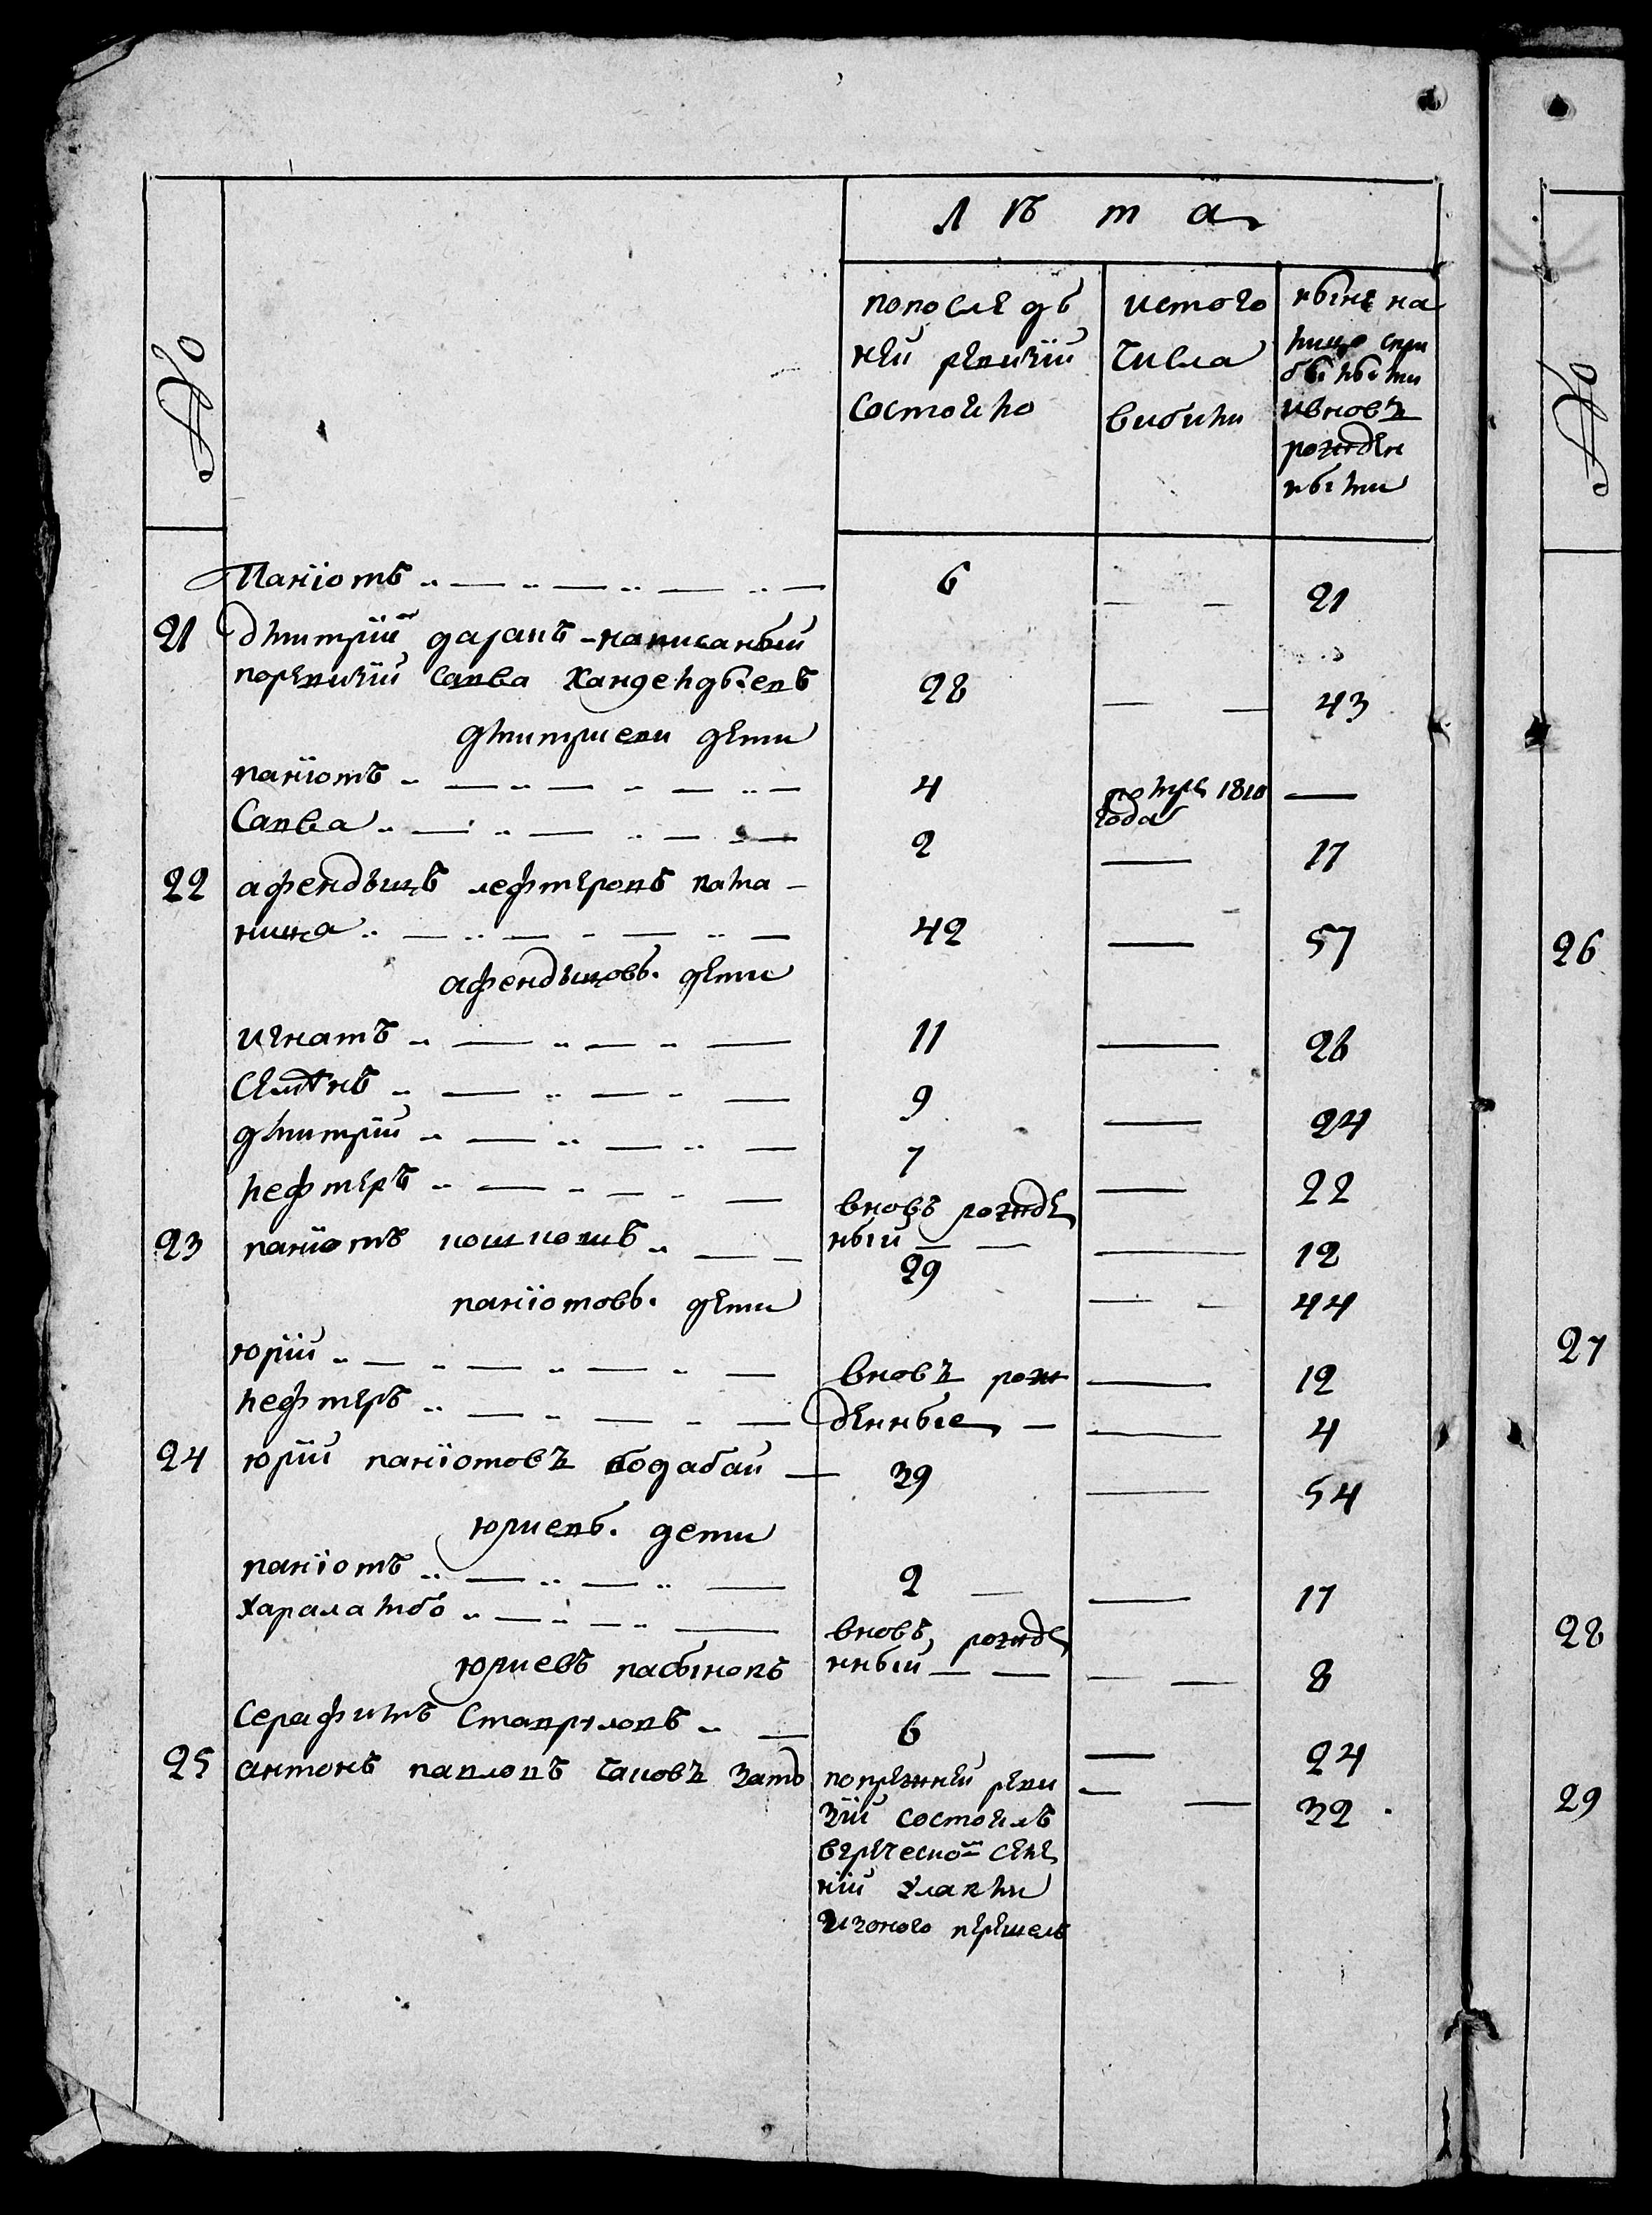 Лѣта
№
попослѣдъ
ней ревизіи
состояло
истого
числа
выбыли
нынѣ на
лицо спри
былыми
ивновь
рожден
ными
Паніотъ 6 21
21 Дмитрій написаный
поревизіи Савва 28 43
дмитриеви дети
паніотъ 4 1810 —
года
Савва 2 17
22 афендыцъ лефтеровъ
42 57
афендыцовъ дети
игнатъ 11 26
Семѣнъ 9 24
дмитрій 7 22
лефтеръ вновь рожде
ный 12
23 паніотъ кошкошъ 29 44
паніотовъ дети
юрій вновь рож 12
лефтеръ денные 4
24 юрій паніотовъ бодабаи 39 54
юриевъ дети
паніотъ 2 17
Харалампо вновь рожде
нный 8
юриевъ пасынокъ
Серафимъ Ставриловъ 6 24
25 антонъ павловъ чаковъ зять попрежней реви 32
зіи состоялъ
вгреческой селе
ніи
изоного перешелъ
№
26
27
28
29